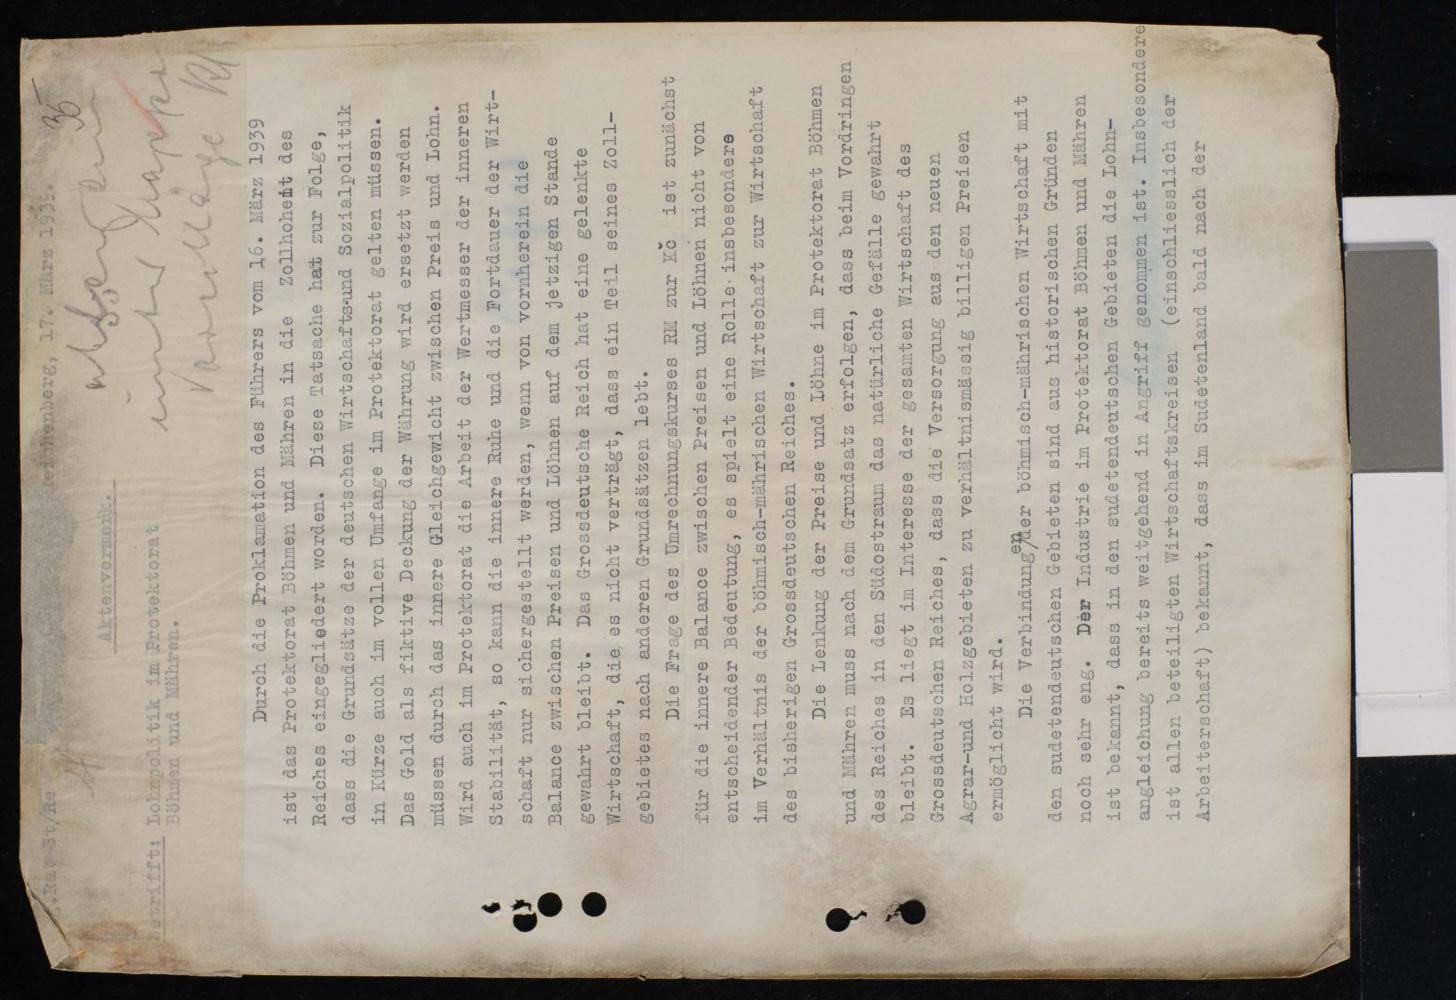 35
Reichenberg, 17. März 1939.
St/Re
Aktenvermerk.
Betrifft: Lohnpolitik im Protektorat
Böhmen und Mähren.
Durch die Proklamation des Führers vom 16. März 1939
ist das Protektorat Böhmen und Mähren in die Zollhoheit des
Reiches eingegliedert worden. Diese Tatsache hat zur Folge,
dass die Grundsätze der deutschen Wirtschafts-und Sozialpolitik
in Kürze auch im vollen Umfange im Protektorat gelten müssen.
Das Gold als fiktive Deckung der Währung wird ersetzt werden
müssen durch das innere Gleichgewicht zwischen Preis und Lohn.
Wird auch im Protektorat die Arbeit der Wertmesser der inneren
Stabilität, so kann die innere Ruhe und die Fortdauer der Wirt-
schaft nur sichergestellt werden, wenn von vornherein die
Balance zwischen Preisen und Löhnen auf dem jetzigen Stande
gewahrt bleibt. Das Grossdeutsche Reich hat eine gelenkte
Wirtschaft, die es nicht verträgt, dass ein Teil seines Zoll-
gebietes nach anderen Grundsätzen lebt.
Die Frage des Umrechnungskurses RM zur Kč ist zunächst
für die innere Balance zwischen Preisen und Löhnen nicht von
entscheidender Bedeutung, es spielt eine Rolle insbesondere
im Verhältnis der böhmisch-mährischen Wirtschaft zur Wirtschaft
des bisherigen Grossdeutschen Reiches.
Die Lenkung der Preise und Löhne im Protektorat Böhmen
und Mähren muss nach dem Grundsatz erfolgen, dass beim Vordringen
des Reiches in den Südostraum das natürliche Gefälle gewahrt
bleibt. Es liegt im Interesse der gesamten Wirtschaft des
Grossdeutschen Reiches, dass die Versorgung aus den neuen
Agrar-und Holzgebieten zu verhältnismässig billigen Preisen
ermöglicht wird.
Die Verbindungen der böhmisch-mährischen Wirtschaft mit
den sudetendeutschen Gebieten sind aus historischen Gründen
noch sehr eng. Der Industrie im Protektorat Böhmen und Mähren
ist bekannt, dass in den sudetendeutschen Gebieten die Lohn-
angleichung bereits weitgehend in Angriff genommen ist. Insbesondere
ist allen beteiligten Wirtschaftskreisen (einschliesslich der
Arbeiterschaft) bekannt, dass im Sudetenland bald nach der